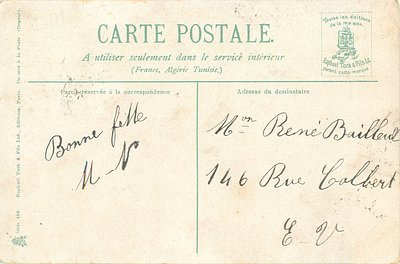 CARTE POSTALE.
A utiliser seulement dans le service intérieur
(France, Algérie Tunisie.)
Toutes les éditions
de la maison
Raphael Tuck & Fils Ltd.
portent cette marque
Partie réservée à la correspondance
Adresse du destinataire
Bonne fête
M-V
Mon René Bailleul
146 Rue Colbert
E. V
Raphael Tuck & Fils Ltd. Editeurs, Paris. Dessiné à la Prusse